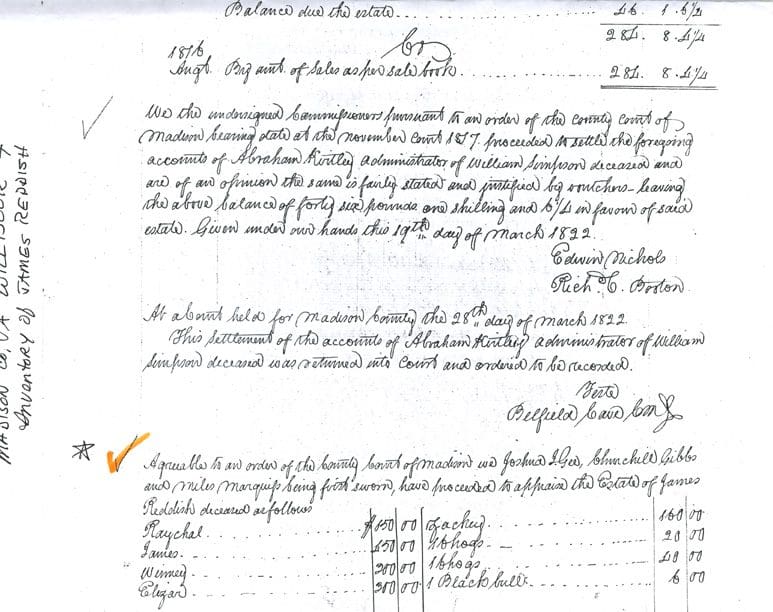 Balance due the estate........................ 46. 1. 6¼
284. 8. 4¼
Cr
1816
Augt. By amt. of Sales as per sale book........................ 284. 8. 4¼
We the undersigned Commissioners pursuant to an order of the county court of
Madison bearing date at the november court 1817. proceeded to settle the foregoing
accounts of Abraham Kirtley administrator of William Simpson deceased and
are of an opinion the same is fairly stated and justified by vouchers leaving
the above balance of forty six pounds one shilling and 6¼ in favour of said
estate. Given under our hands this 19th day of March 1822.
Edwin Nichols
Richd. C. Booton
At a Court held for Madison County the 28th day of March 1822
This settlement of the accounts of Abraham Kirtley administrator of William
Simpson deceased was returned into Court and ordered to be recorded.
Teste
Belfield Cave
Agreeable to an order of the County Court of Madison we Joshua Gee, Churchill Gibbs
and Miles Marquiss being first sworn, have proceeded to appraise the Estate of James
Reddish deceased as follows
Raychal $450 00 Zackey 100 00
James 450 00 hogs 20 00
Winney 200 00 hogs 40 00
Elizar 300 00 1 Black bull 6 00
MADISON CO, VA WILLBOOK 4
INVENTORY OF JAMES REDDISH